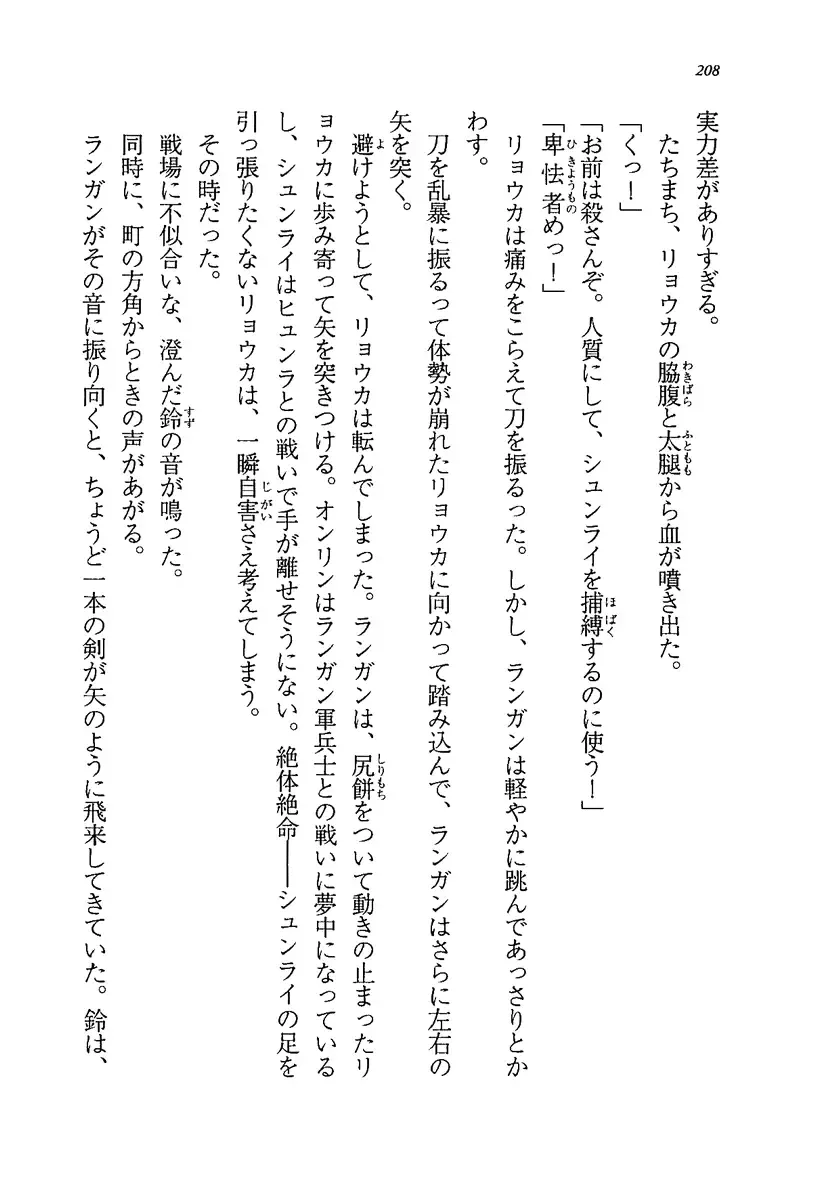 208
実力差がありすぎる。
たちまち、リョウカの脇腹と太腿から血が噴き出た。
「くっ！」
「お前は殺さんぞ。人質にして、シュンライを捕縛するのに使う！」
「卑怯者めっ！」
リョウカは痛みをこらえて刀を振るった。しかし、ランガンは軽やかに跳んであっさりとか
わす。
刀を乱暴に振るって体勢が崩れたリョウカに向かって踏み込んで、ランガンはさらに左右の
矢を突く。
避けようとして、リョウカは転んでしまった。ランガンは、尻餅をついて動きの止まったリ
ョウカに歩み寄って矢を突きつける。オンリンはランガン軍兵士との戦いに夢中になっている
し、シュンライはヒュンラとの戦いで手が離せそうにない。絶体絶命――シュンライの足を
引っ張りたくないリョウカは、一瞬自害さえ考えてしまう。
その時だった。
戦場に不似合いな、澄んだ鈴の音が鳴った。
同時に、町の方角からときの声があがる。
ランガンがその音に振り向くと、ちょうど一本の剣が矢のように飛来してきていた。鈴は、